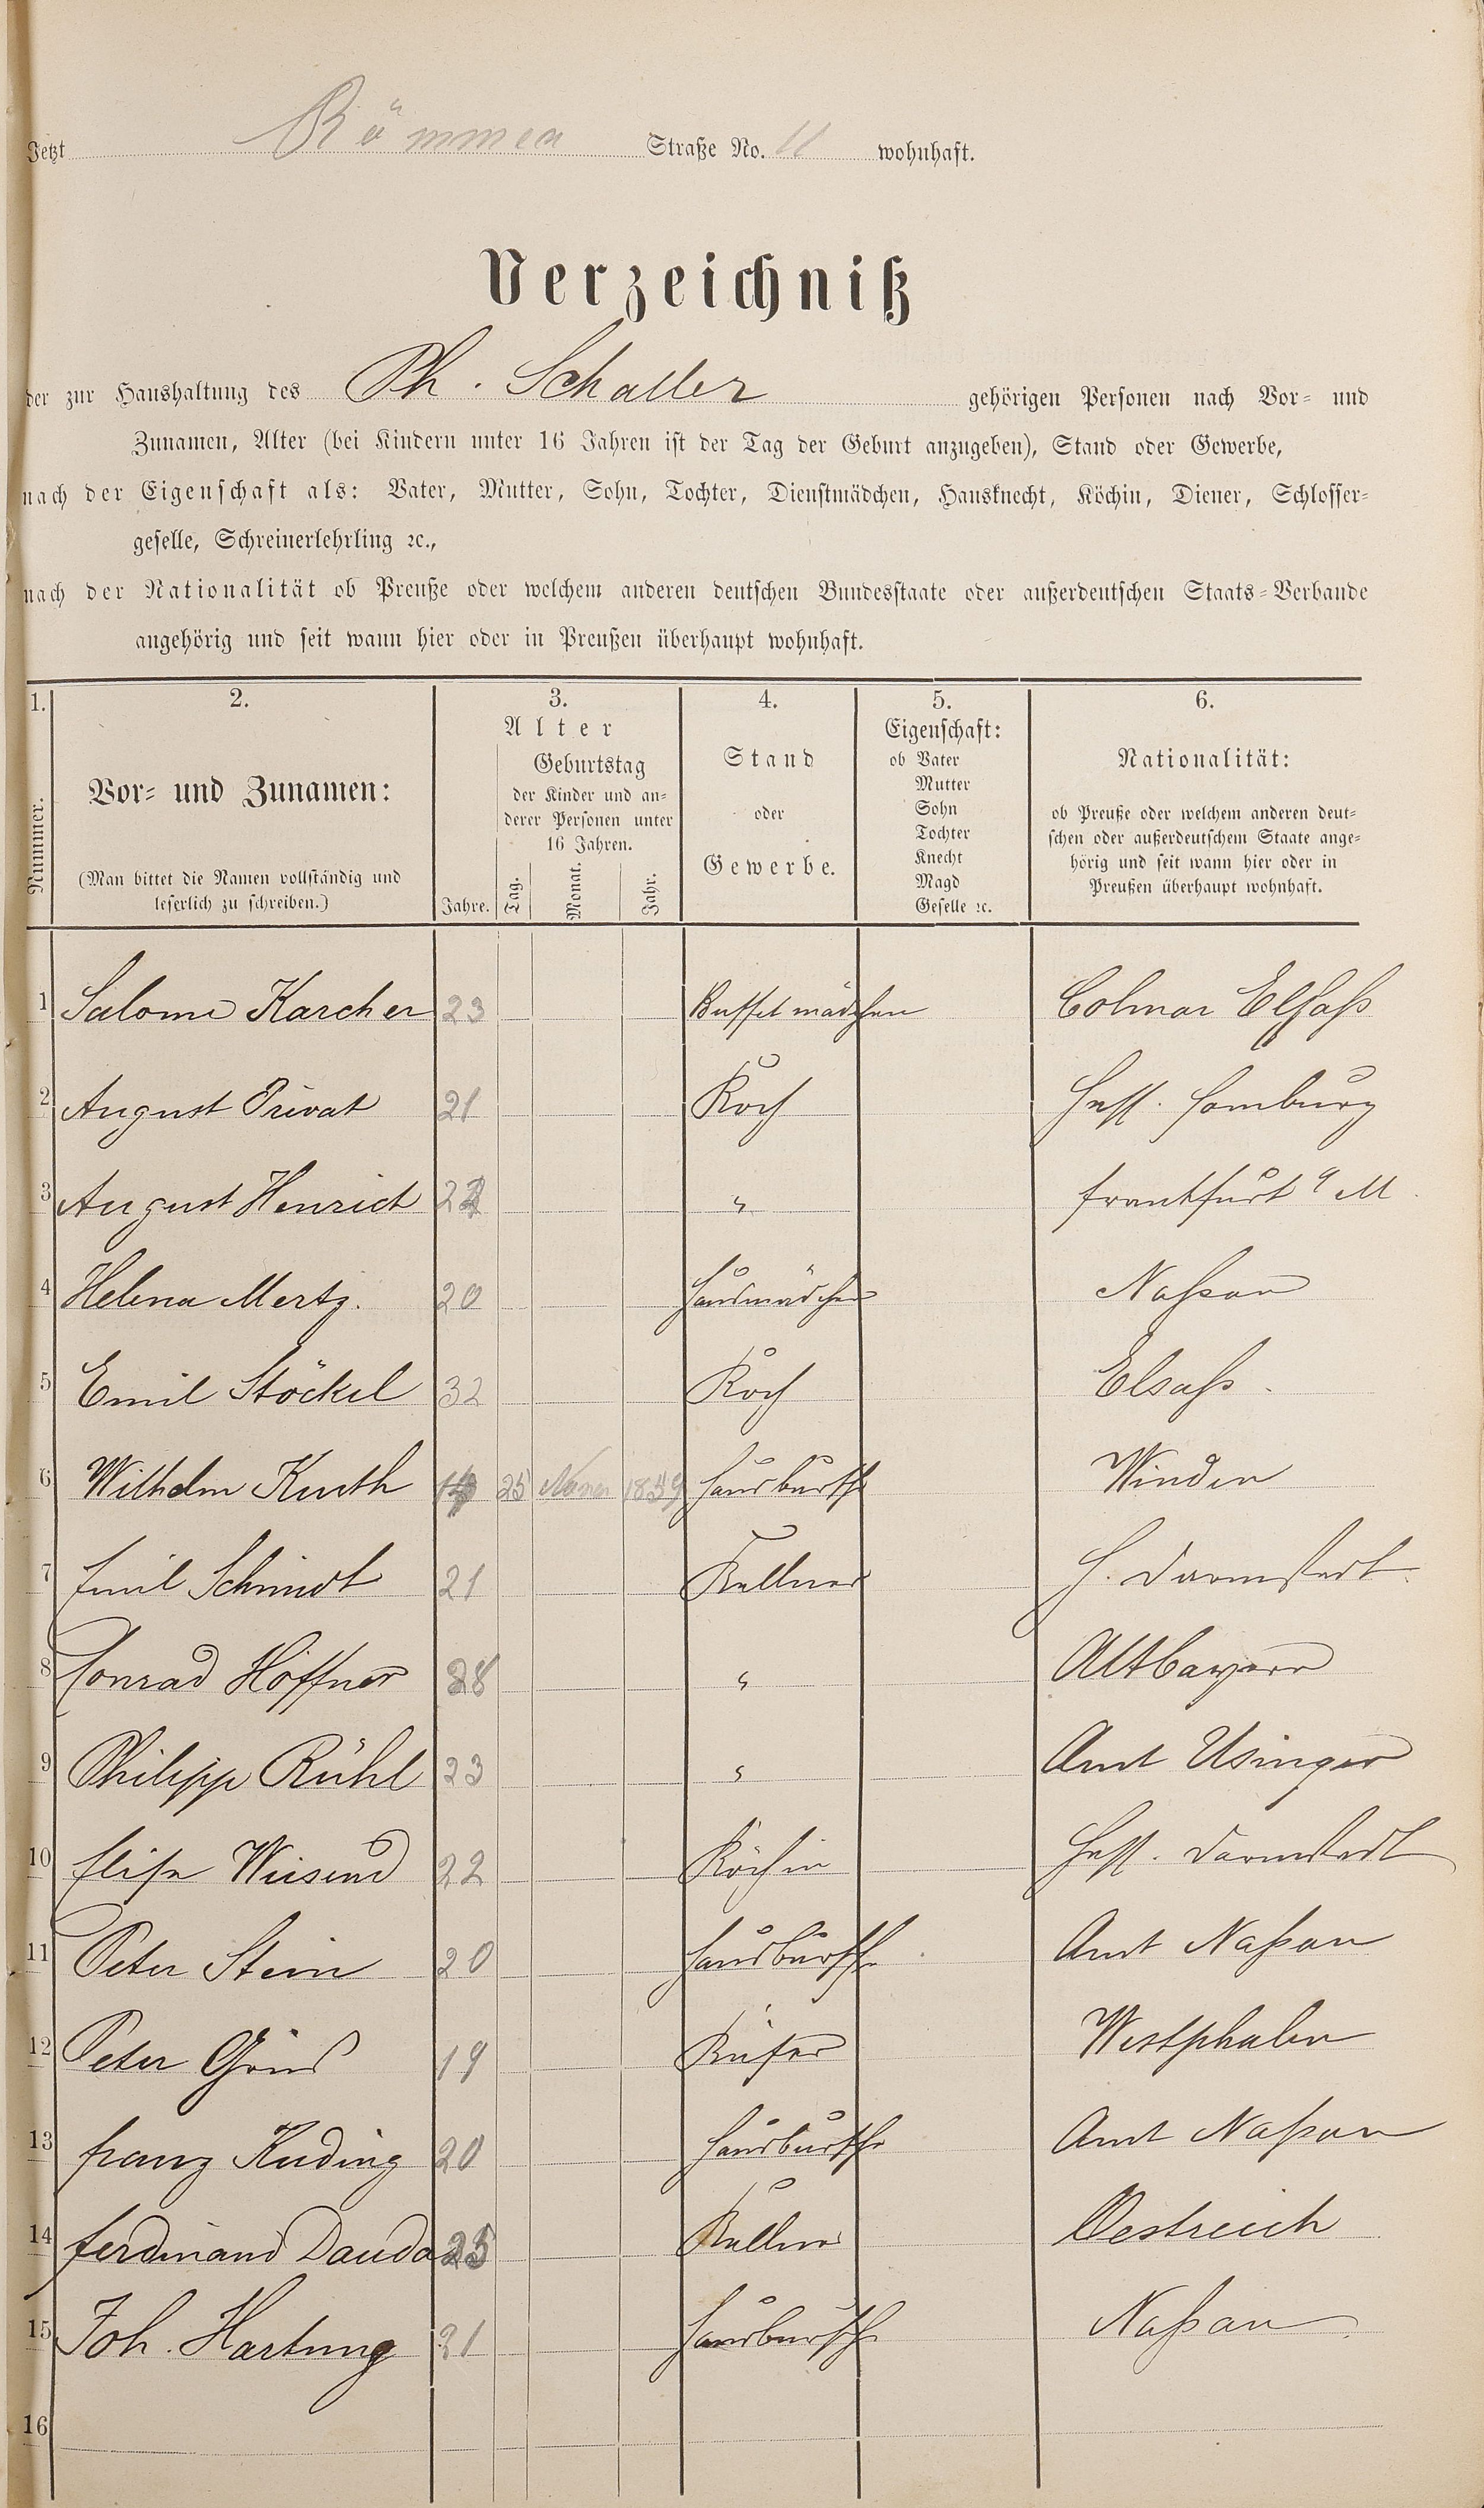 Jetzt Römmer Straße No. 11 wohnhaft.
Verzeichniß
der zur Haushaltung des Ph. Schaller gehörigen Personen nach Vor- und
Zunamen, Alter (bei Kindern unter 16 Jahren ist der Tag der Geburt anzugeben), Stand oder Gewerbe,
nach der Eigenschaft als: Vater, Mutter, Sohn, Tochter, Dienstmädchen, Hausknecht, Köchin, Diener, Schlosser-
geselle, Schreinerlehrling ꝛc.,
nach der Nationalität ob Preuße oder welchem anderen deutschen Bundesstaate oder außerdeutschen Staats-Verbande
angehörig und seit wann hier oder in Preußen überhaupt wohnhaft.
1. 2. 3. 4. 5. 6.
Nummer.
Vor- und Zunamen:
(Man bittet die Namen vollständig und
leserlich zu schreiben.)
Alter
Jahre.
Geburtstag
der Kinder und an-
derer Personen unter
16 Jahren.
Tag. Monat. Jahr.
Stand
oder
Gewerbe.
Eigenschaft:
ob Vater
Mutter
Sohn
Tochter
Knecht
Magd
Geselle ꝛc.
Nationalität:
ob Preuße oder welchem anderen deut-
schen oder außerdeutschem Staate ange-
hörig und seit wann hier oder in
Preußen überhaupt wohnhaft.
1 Salome Karcher 23 Buffetmädchen Colmar Elsaß
2 August Privat 21 Koch Hess. Homburg
3 August Henrich " Frankfurt a M.
4 Helena Mertz. 20 Hausmädchen Naßau
5 Emil Stöckel 32 Koch Elsaß.
6 Wilhelm Kurth 25 Hausbursche Winden
7 Emil Schmidt 21 Kellner H. Darmstadt.
8 Conrad Höffner 28 " Altbayern
9 Philipp Rühl 23 " Amt Usingen
10 Elise Wiesend 22 Köchin Hess. Darmstadt
11 Peter Stein 20 Hausbursche Amt Naßau
12 Peter 19 Küfer Westphalen
13 Franz Kuding 20 Hausbursche Amt Naßau
14 Ferdinand Dauda 25 Kellner Oestreich
15 Joh. Hartung 21 Hausbursche Naßau.
16